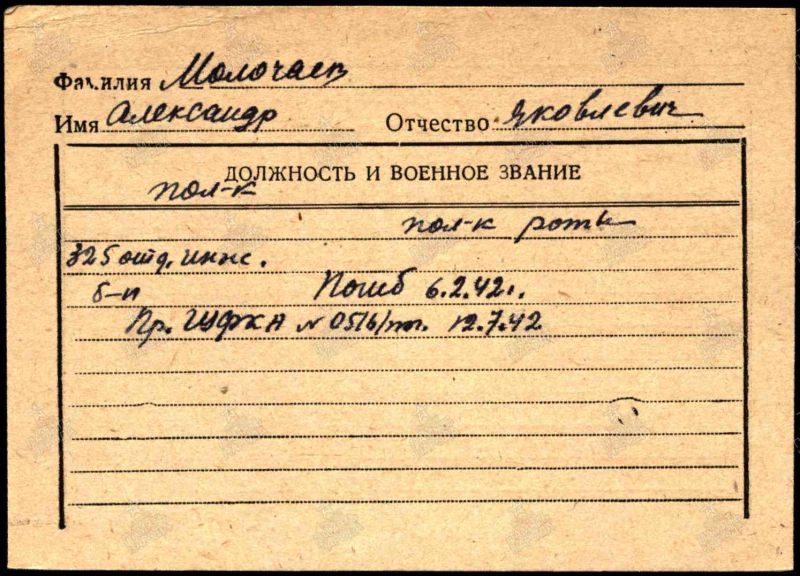 Фамилия Молочаев
Имя Александр Отчество Яковлевич
ДОЛЖНОСТЬ И ВОЕННОЕ ЗВАНИЕ
пол-к
пол-к роты
325 отд. инж.
б-н Погиб 6.2.42г.
Пр. ГУФКА № 0516/пог. 12.7.42